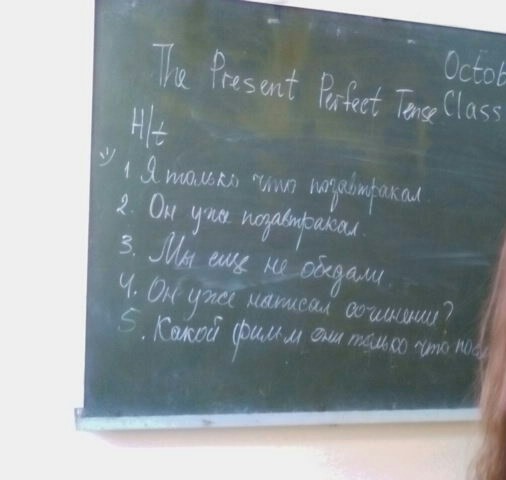 Octob
The Present Perfect Tense Class
H/t
1 Я только что позавтракал.
2. Он уже позавтракал.
3. Мы еще не обедали.
4. Он уже написал сочинение?
5. Какой фильм они только что